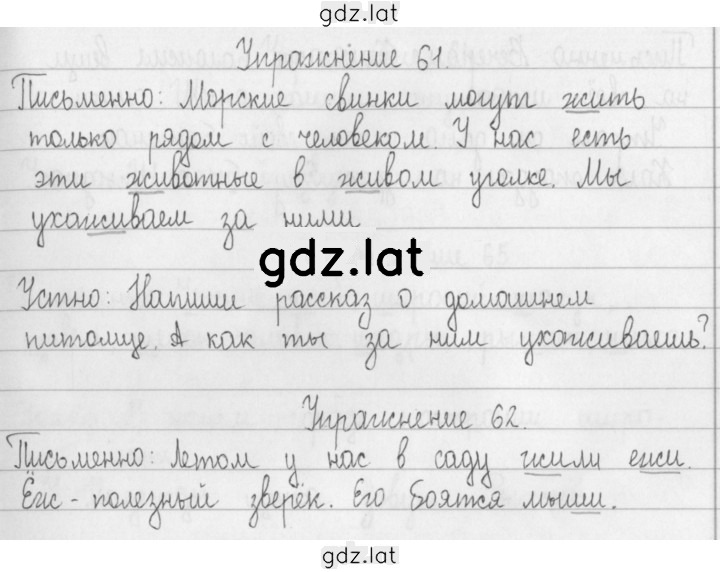 gdz.lat
Упражнение 61.
Письменно: Морские свинки могут жить
только рядом с человеком. У нас есть
эти животные в живом уголке. Мы
ухаживаем за ними
gdz.lat
Устно: Напиши рассказ о домашнем
питомце. А как ты за ним ухаживаешь?
Упражнение 62.
Письменно: Летом у нас в саду жили ежи.
Ёж - полезный зверёк. Его боятся мыши.
gdz.lat